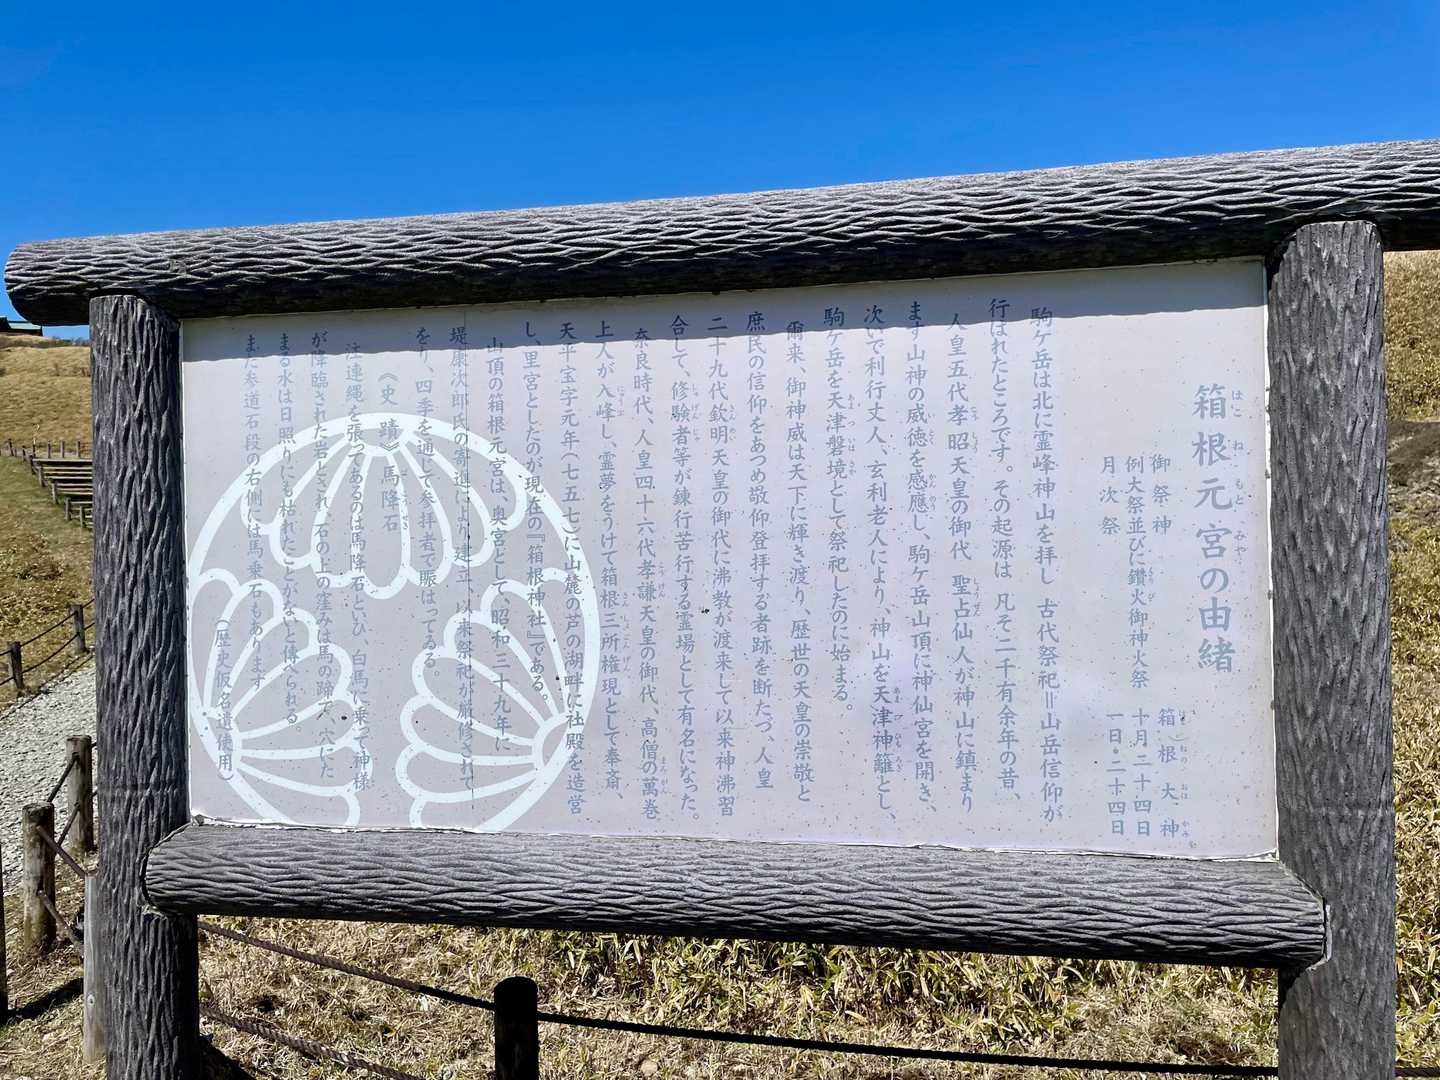 箱根元宮の由緒
御祭神 箱根大神
例大祭並びに鑽火御神火祭 十月二十四日
月次祭 一日・二十四日
駒ケ岳は北に霊峰神山を拝し 古代祭祀＝山岳信仰が
行はれたところです。その起源は 凡そ二千有余年の昔、
人皇五代孝昭天皇の御代 聖占仙人が神山に鎮まり
ます山神の威徳を感應し、駒ケ岳山頂に神仙宮を開き、
次いで利行丈人、玄利老人により、神山を天津神籬とし、
駒ケ岳を天津磐境として祭祀したのに始まる。
爾来、御神威は天下に輝き渡り、歴世の天皇の崇敬と
庶民の信仰をあつめ敬仰登拝する者跡を断たづ、人皇
二十九代欽明天皇の御代に沸教が渡来して以来神沸習
合して、修験者等が錬行苦行する霊場として有名になった。
奈良時代、人皇四十六代孝謙天皇の御代、高僧の萬巻
上人が入峰し、霊夢をうけて箱根三所権現として奉斎、
天平宝字元年（七五七）に山麓の芦の湖畔に社殿を造営
し、里宮としたのが現在の『箱根神社』である。
山頂の箱根元宮は、奥宮として、昭和三十九年に
堤康次郎氏の寄進により、建立、以来祭祀が厳修されて
をり、四季を通じて参拝者で賑はってゐる。
《史蹟》馬降石
注連縄を張ってあるのは馬降石といひ、白馬に乗って神様
が降臨された岩とされ、石の上の窪みは馬の蹄で、穴にた
まる水は日照りにも枯れたことがないと傳へられる。
また参道石段の右側には馬乗石もあります
（歴史仮名遣使用）